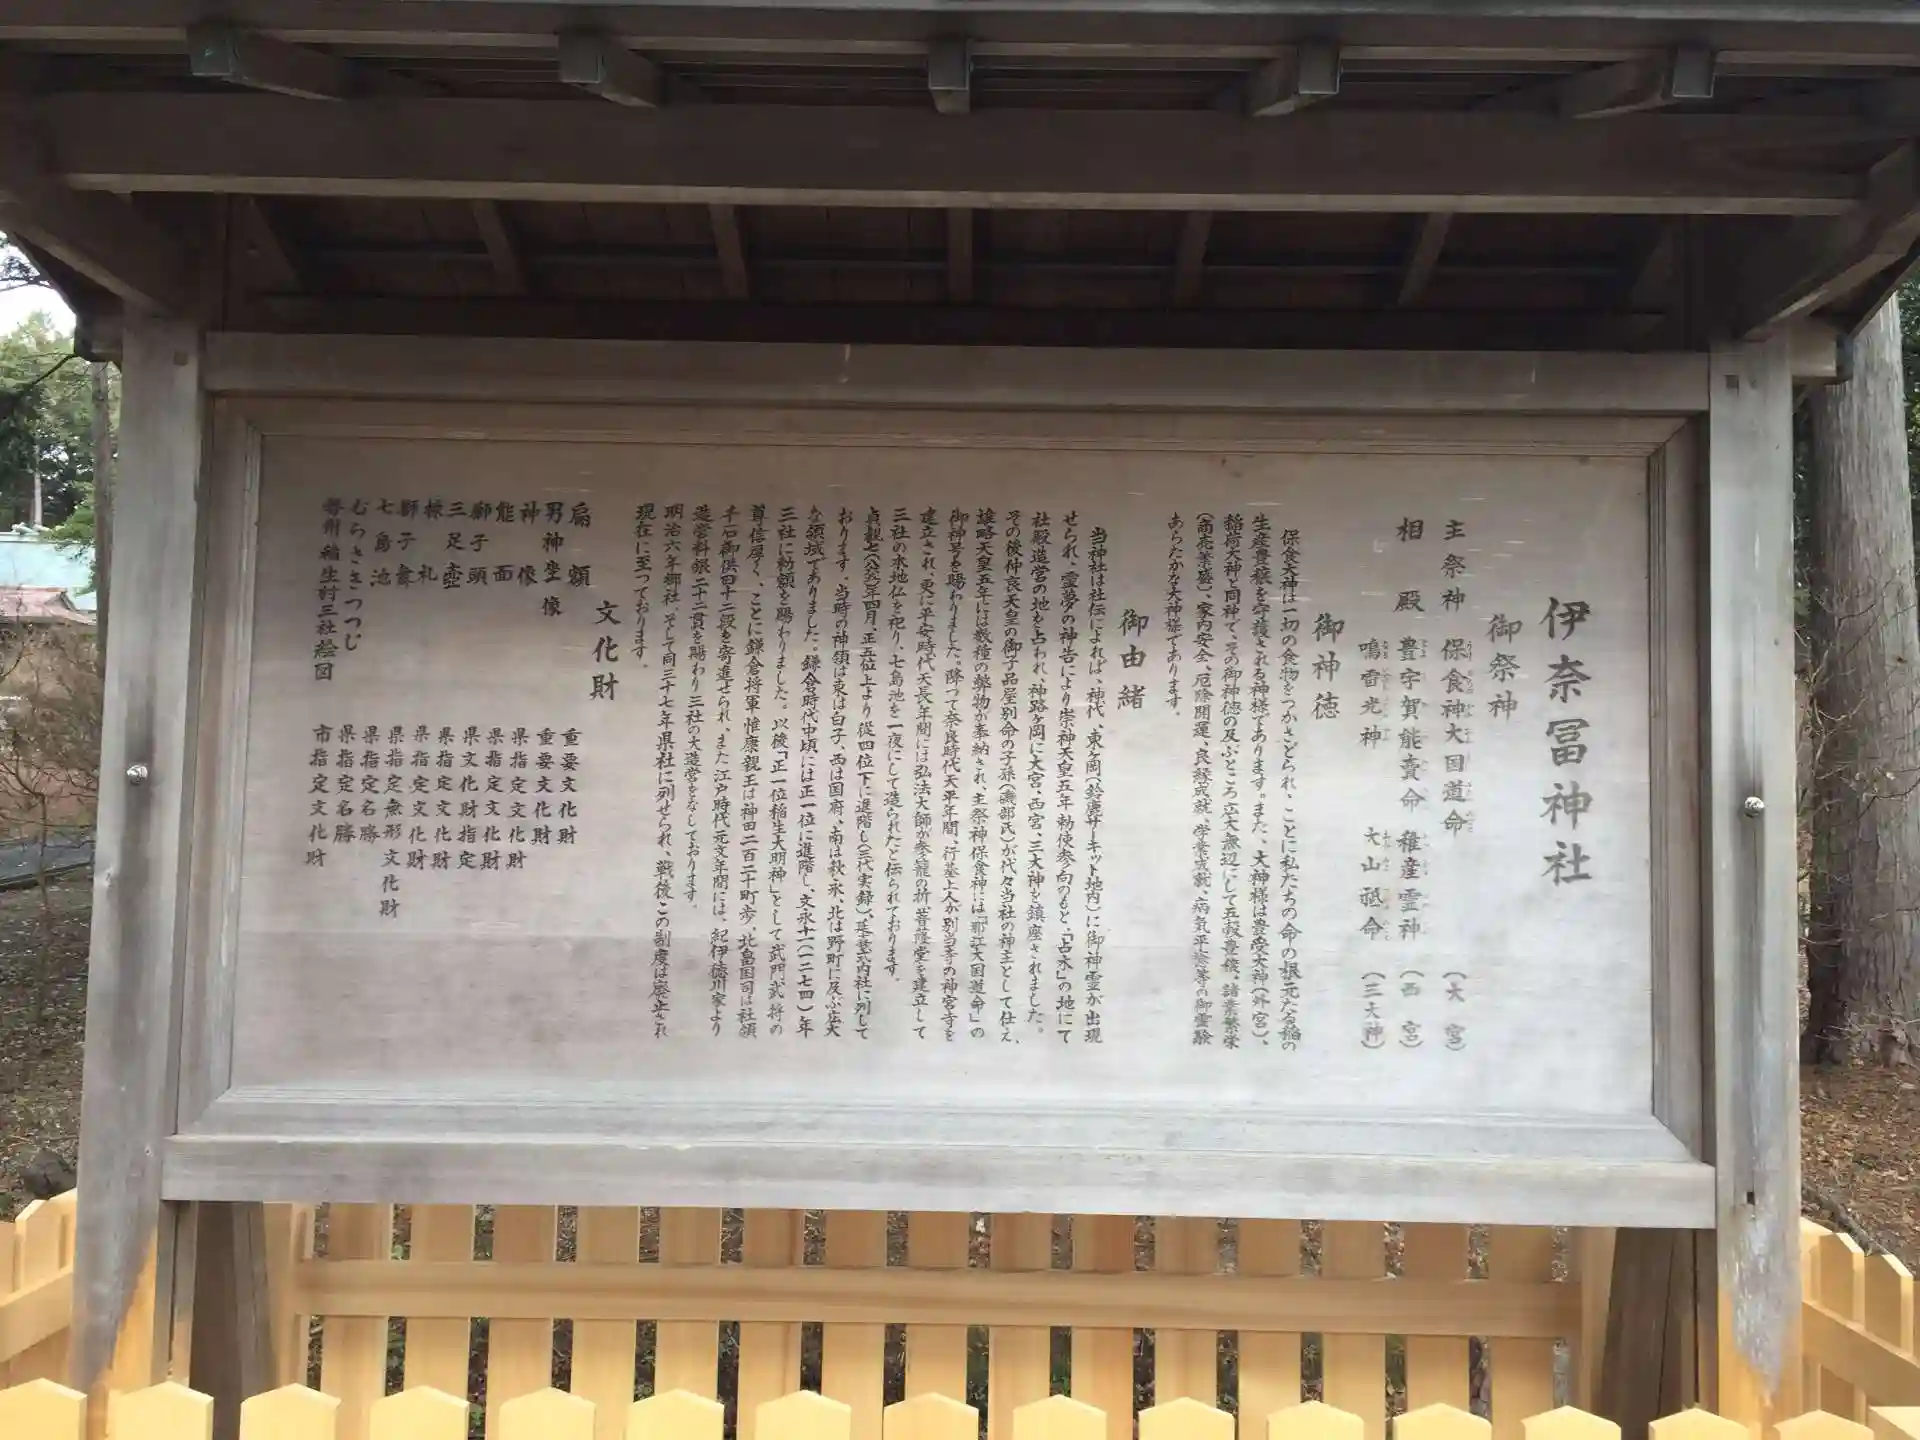 伊奈冨神社
御祭神
主祭神 保食神 大国道命 (大宮)
相殿 豊宇賀能売命 稚産霊神 (西宮)
鳴雷光神 大山祗命 (三大神)
御神徳
保食大神は一切の食物をつかさどられ、ことに私たちの命の根元たる稲の
生産豊穣を守護される神様であります。また、大神様は豊受大神(外宮)、
稲荷大神と同神で、その御神徳の及ぶところ広大無辺にして五穀豊穣、諸業繁栄
(商売業盛)、家内安全、厄除開運、良縁成就、学業成就、病気平癒等の御霊験
あらたかな大神様であります。
御由緒
当神社は社伝によれば、神代、東ヶ岡(鈴鹿サーキット地内)に御神霊が出現
せられ、霊夢の神告により崇神天皇五年勅使参向のもと、「占木」の地にて
社殿造営の地を占われ、神路ヶ岡に大宮、西宮、三大神を鎮座されました。
その後仲哀天皇の御子品屋別命の子孫(磯部氏)が代々当社の神主として仕え、
雄略天皇五年には数種の弊物が奉納され、主祭神保食神には「那江大国道命」の
御神号を賜わりました。降つて奈良時代天平年間、行基上人が別当寺の神宮寺を
建立され、更に平安時代天長年間には弘法大師が参籠の折、菩薩堂を建立して
三社の本地仏を祀り、七島池を一夜にして造られたと伝られております。
貞観七(八六五)年四月、正五位上より従四位下に進階し(三代実録)、延喜式内社に列して
おります。当時の神領は東は白子、西は国府、南は秋永、北は野町に及ぶ広大
な領域でありました。鎌倉時代中頃には正一位に進階し、文永十一(一二七四)年
三社に勅額を賜わりました。以後「正一位稲生大明神」として武門、武将の
尊信厚く、ことに鎌倉将軍惟康親王は神田二百二十町歩、北畠国司は社領
千石御供田十二段を寄進せられ、また江戸時代元文年間には、紀伊徳川家より
造営料銀二十二貫を賜わり三社の大造営をなしております。
明治六年郷社、そして同三十七年県社に列せられ、戦後この制度は廃止され
現在に至つております。
文化財
扁額 重要文化財
男神坐像 重要文化財
神像 県指定文化財
能面 県指定文化財
獅子頭 県文化財指定
三足壺 県指定文化財
棟札 県指定文化財
獅子舞 県指定無形文化財
七島池 県指定名勝
むらさきつつじ 県指定名勝
勢州稲生村三社絵図 市指定文化財